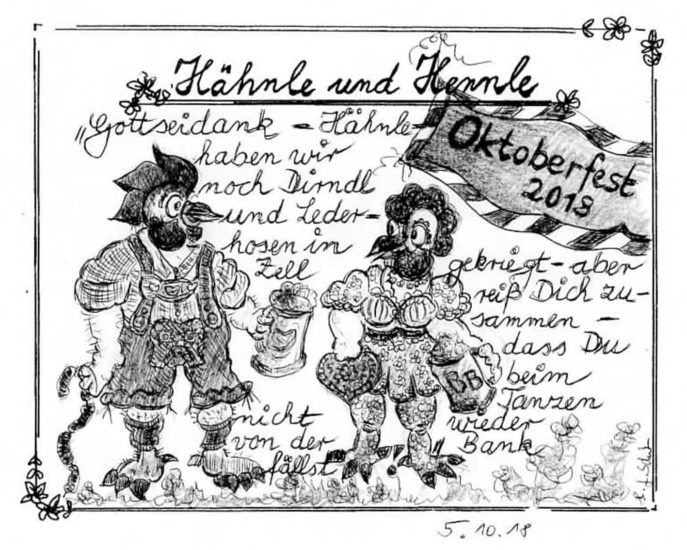 Hähnle und Hennle
„Gottseidank – Hähnle –
haben wir
noch Dirndl
und Leder-
hosen in
Zell
Oktoberfest
2018
gekriegt – aber
reiß Dich zu-
sammen –
dass Du
beim
Tanzen
wieder
nicht
von der
Bank
fällst!"
BB
5.10.18